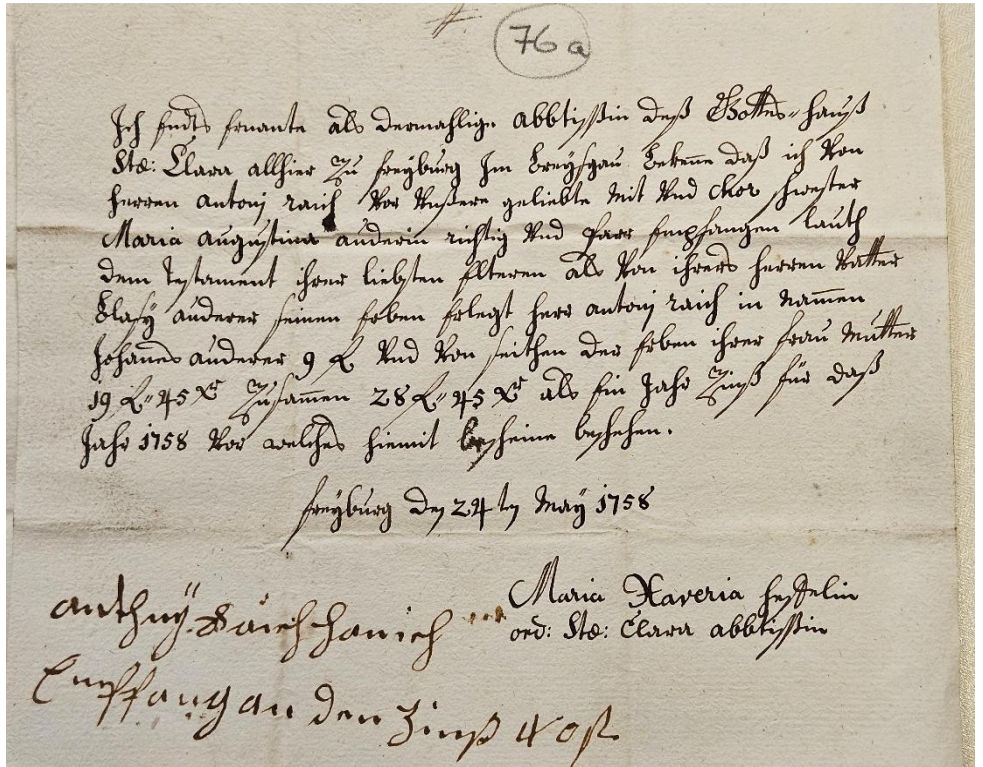 76 a
Ich Endts Ernante als dermahlige abbtissin deß Gottes-hauß
Stæ: Clara allhier Zu freyburg Im breysgau. bekenne daß ich von
herren antonj raich vor unßere geliebte Mit und Chor schwester
Maria augustina anderin richtig und paar Empfangen lauth
dem Testament ihrer liebsten Elteren als von ihrers herren vatter
blasy anderer seinen Erben Erlegt herr antonj raich in nammen
Johanes anderer 9 und von seithen der Erben ihrer frau Mutter
19 45 xr Zusammen 28 45 xr als Ein Jahr Zinß für daß
Jahr 1758 vor welches hiemit bescheine beschehen.
freyburg den 24ten May 1758
Maria Xaveria
ord: Stæ: Clara abbtissin
anthuÿ hab ich
Empfangan den Zinß